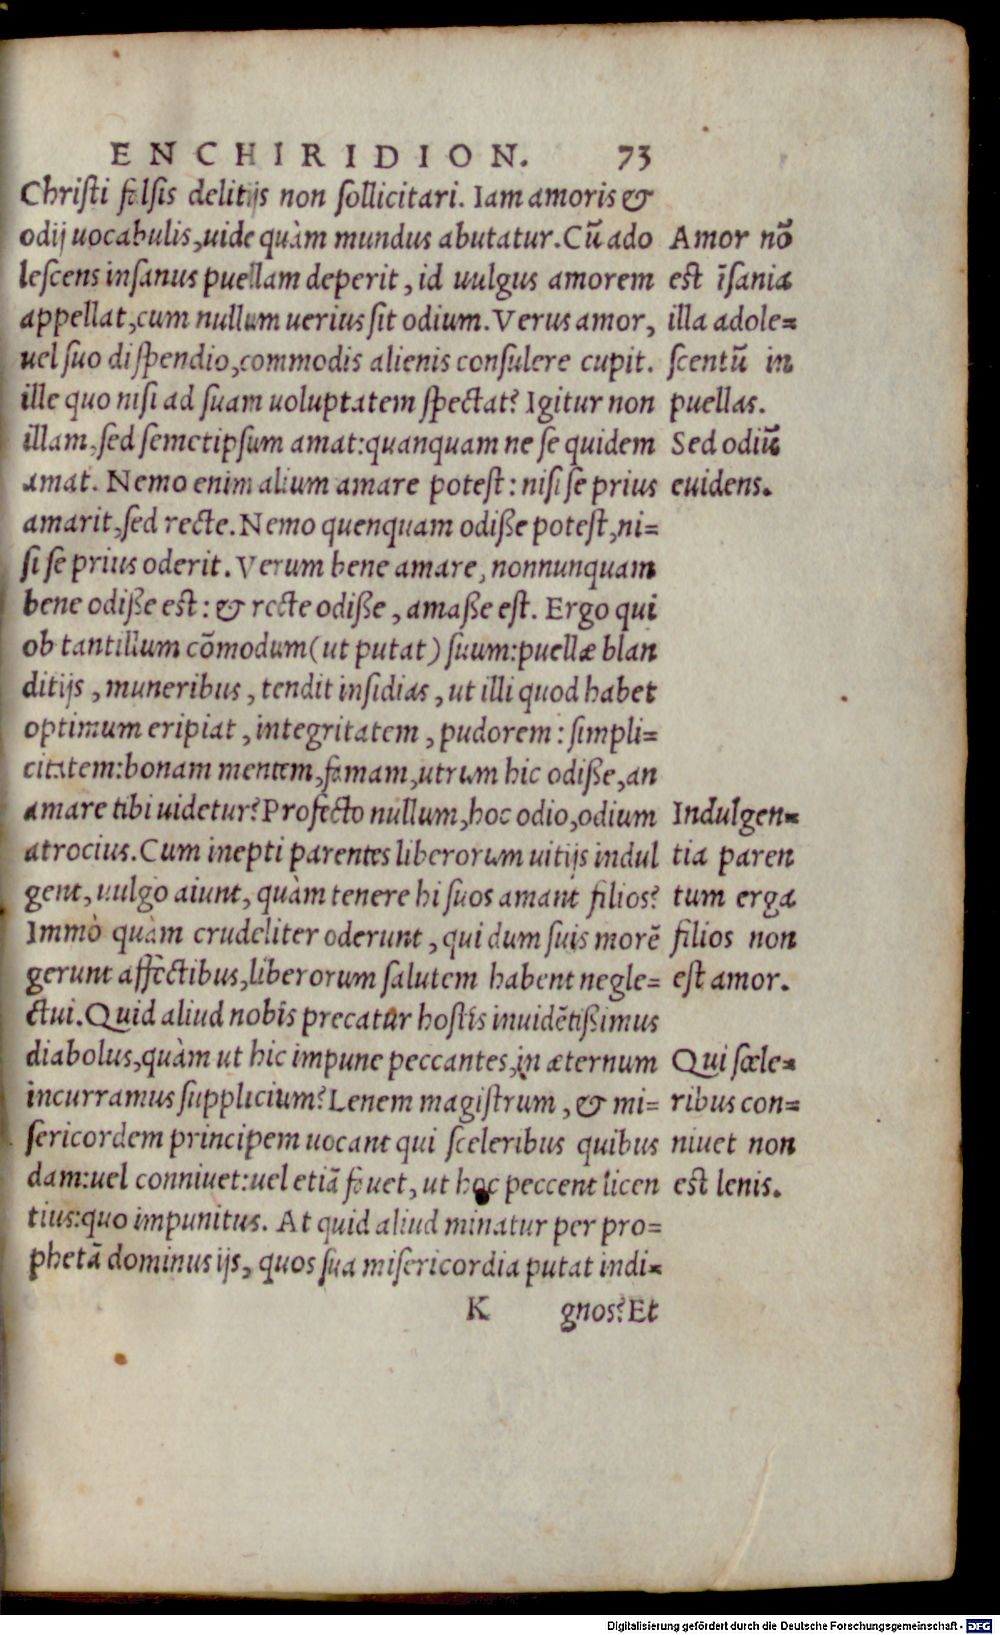 ENCHIRIDION. 73
Chriſti falſis delitijs non ſollicitari. Iam amoris &
odij uocabulis, uide quàm mundus abutatur. Cū ado
leſcens inſanus puellam deperit, id uulgus amorem
appellat, cum nullum uerius ſit odium. Verus amor,
uel ſuo diſpendio, commodis alienis conſulere cupit.
ille quo niſi ad ſuam uoluptatem ſpectat? Igitur non
illam, ſed ſemetipſum amat: quanquam ne ſe quidem
amat. Nemo enim alium amare poteſt: niſi ſe prius
amarit, ſed recte. Nemo quenquam odiſſe poteſt, ni=
ſi ſe prius oderit. Verum bene amare, nonnunquam
bene odiſſe est: & recte odiſſe, amaſſe eſt. Ergo qui
ob tantillum cōmodum (ut putat) ſuum: puellæ blan
ditijs, muneribus, tendit inſidias, ut illi quod habet
optimum eripiat, integritatem, pudorem: ſimpli=
citatem: bonam mentem, famam, utrum hic odiſſe, an
amare tibi uidetur? Profecto nullum, hoc odio, odium
atrocius. Cum inepti parentes liberorum uitijs indul
gent, uulgo aiunt, quàm tenere hi ſuos amant filios?
Immò quàm crudeliter oderunt, qui dum ſuis morē
gerunt affectibus, liberorum ſalutem habent negle=
ctui. Quid aliud nobis precatur hoſtis inuidētiſſimus
diabolus, quàm ut hic impune peccantes, in æternum
incurramus ſupplicium? Lenem magiſtrum, & mi=
ſericordem principem uocant qui ſceleribus quibus
dam: uel conniuet: uel etiā fouet, ut hoc peccent licen
tius: quo impunitus. At quid aliud minatur per pro=
phetā dominus ijs, quos ſua miſericordia putat indi=
K gnos? Et
Amor nō
est īſania
illa adole=
ſcentū in
puellas.
Sed odiū
euidens.
Indulgen=
tia paren
tum erga
filios non
est amor.
Qui ſcele=
ribus con=
niuet non
est lenis.
Digitalisierung gefördert durch die Deutsche Forschungsgemeinschaft - DFG